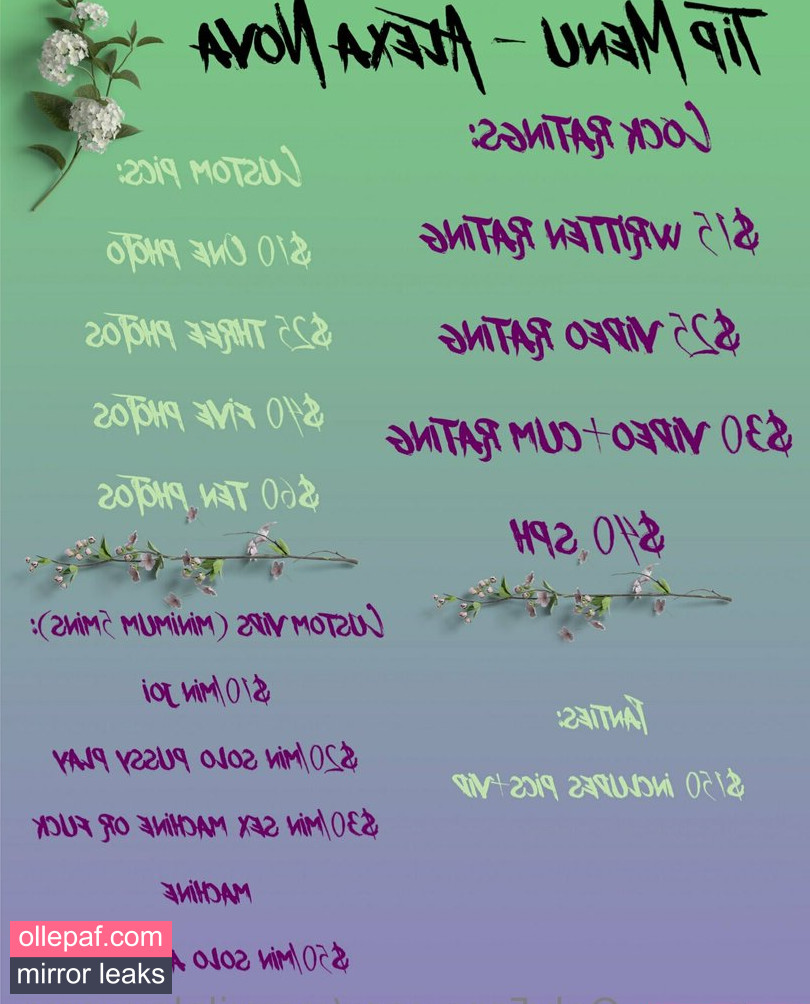 Tip Menu - Alexa Nova
Cock Ratings:
$15 Written Rating
$25 Video Rating
$30 Video+Cum Rating
$40 SPH
Panties:
$150 includes pics+vid
Custom pics:
$10 One photo
$25 Three photos
$40 Five photos
$60 Ten photos
Custom vids (minimum 5mins):
$10/min JOI
$20/min solo pussy play
$30/min sex machine or fuck
machine
$50/min solo
ollepaf.com
mirror leaks